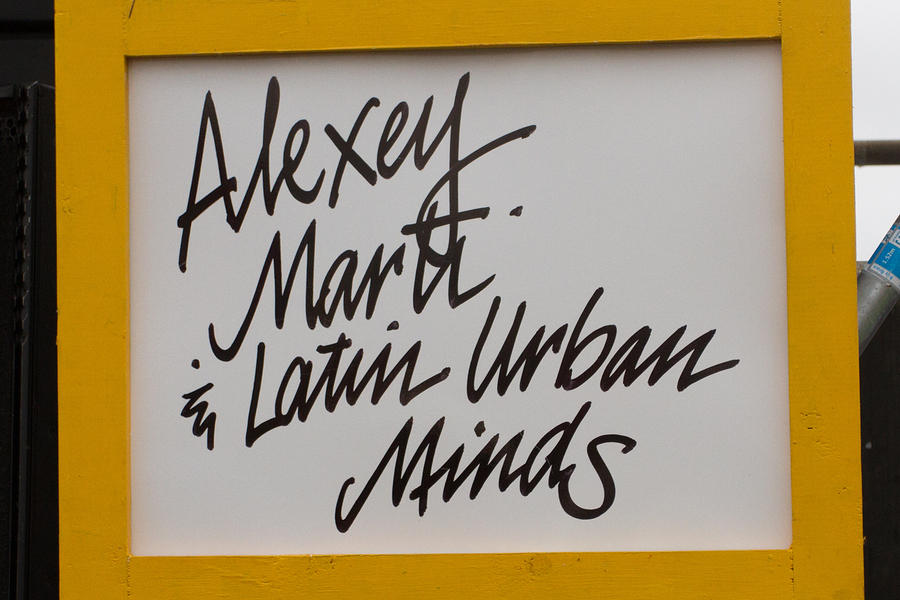 Alexey
Marti
& Latin Urban
Minds
1.52m